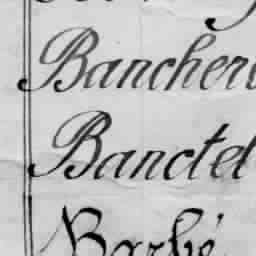 Banchere
Banctel
Barbé